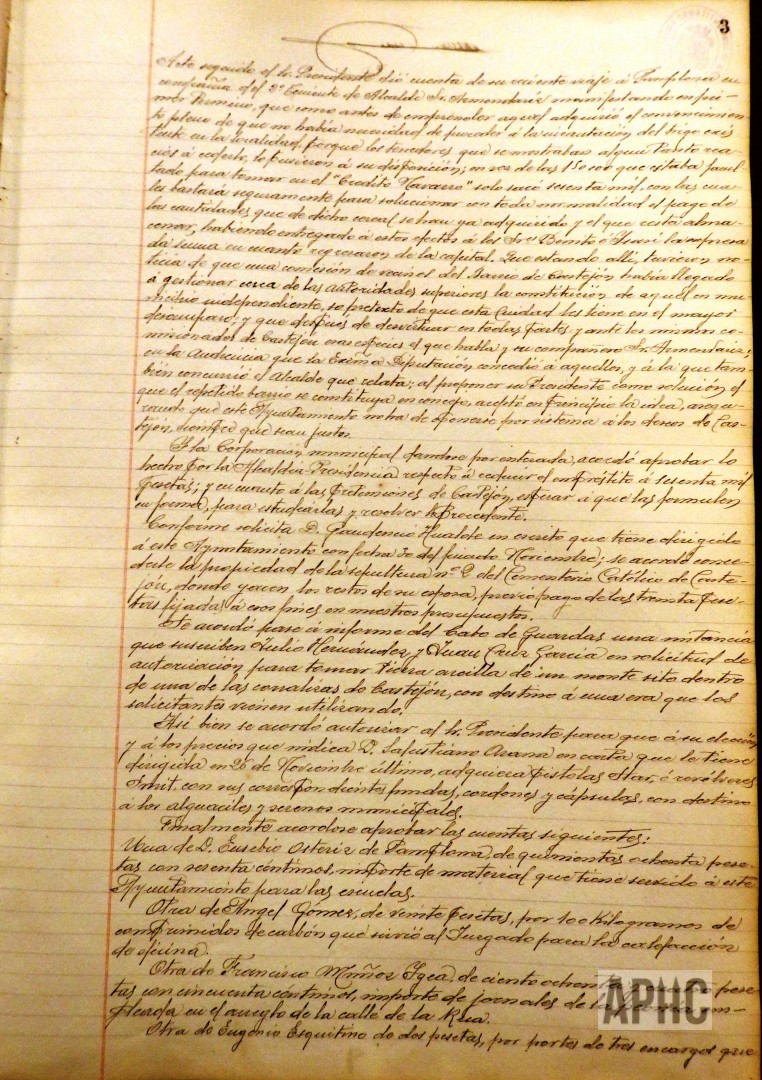 3
Acto seguido el Sr. Presidente dió cuenta de su reciente viaje á Pamplona en
compañía del 2º Teniente de Alcalde Sr. Armendariz manifestando en pri-
mer término, que como antes de emprender aquel adquirió el convencimien-
to pleno de que no había necesidad de proceder á la incautación del trigo exis
tente en la localidad, porque los tenedores que se mostraban algun tanto rea-
cios á cederlo, lo pusieron á su disposición; en vez de las 150.000 que estaba facul-
tado para tomar en el "Credito Navarro" solo sacó sesenta mil, con las cua-
les bastará seguramente para solucionar con toda normalidad el pago de
las cantidades que de dicho cereal se han ya adquirido y el que resta alma-
cenar, habiendo entregado á estos efectos á los Sres. Benito é la expresa
da suma en cuanto regresaron de la capital. Que estando allí, tuvieron no-
ticia de que una comisión de vecinos del Barrio de Castejón había llegado
á gestionar cerca de las autoridades superiores la constitución de aquel en mu-
nicipio independiente, so pretexto de que esta Ciudad les tiene en el mayor
desamparo; y que después de desvirtuar en todas partes y ante los mismos co-
misionados de Castejón esas especies el que habla y su compañero Sr. Armendariz,
en la Audiencia que la Excma Diputación concedió á aquellos, y á la que tam-
bién concurrió el Alcalde que relata; al proponer su Presidente como solución el
que el repetido barrio se constituya en concejo, aceptó en principio la idea, asegu-
rando que este Ayuntamiento no ha de oponerse por sistema á los deseos de Cas-
tejón, siempre que sean justos.
Y la Corporación municipal dandose por enterada, acordó aprobar lo
hecho por la Alcaldía-Presidencia respecto á reducir el empréstito á sesenta mil
pesetas; y en cuanto á las pretensiones de Castejón, esperar á que las formulen
en forma, para estudiarlas y resolver lo procedente.
Conforme solicita D. Gaudencio Hualde en escrito que tiene dirigido
á este Ayuntamiento con fecha 30 del pasado Noviembre; se acordó conce-
derle la propiedad de la sepultura nº 2 del Cementerio Católico de Caste-
jón, donde yacen los restos de su esposa, previo pago de las treinta pese-
tas fijadas á esos fines en nuestros presupuestos.
Se acordó pase á informe del Cabo de Guardas una instancia
que suscriben Julio Hernández y Juan Cruz García en solicitud de
autorización para tomar tierra arcilla de un monte sito dentro
de una de las corralizas de Castejón, con destino á una era que los
solicitantes vienen utilizando.
Así bien se acordó autorizar al Sr. Presidente para que á su elección
y á los precios que indica D. Salustiano Arana en carta que le tiene
dirigida en 26 de Noviembre último, adquiera pistolas Star, ó revólveres
Smit, con sus correspondientes fundas, cordones y cápsulas, con destino
á los alguaciles y serenos municipales.
Finalmente acordose aprobar las cuentas siguientes:
Una de D. Eusebio Osteriz de Pamplona, de quinientas ochenta pese-
tas con sesenta céntimos, importe de material que tiene servido á este
Ayuntamiento para las escuelas.
Otra de Angel Gómez, de veinte pesetas, por 100 Kilogramos de
comprimidos de carbón que sirvió al Juzgado para la calefacción
de oficina.
Otra de Francisco Muñoz Ygea, de ciento ochenta y cuatro pese-
tas con cincuenta céntimos, importe de jornales de em-
pleada en el arreglo de la calle de la Rua.
Otra de Eugenio Esquitino de dos pesetas, por portes de tres encargos que
APHC